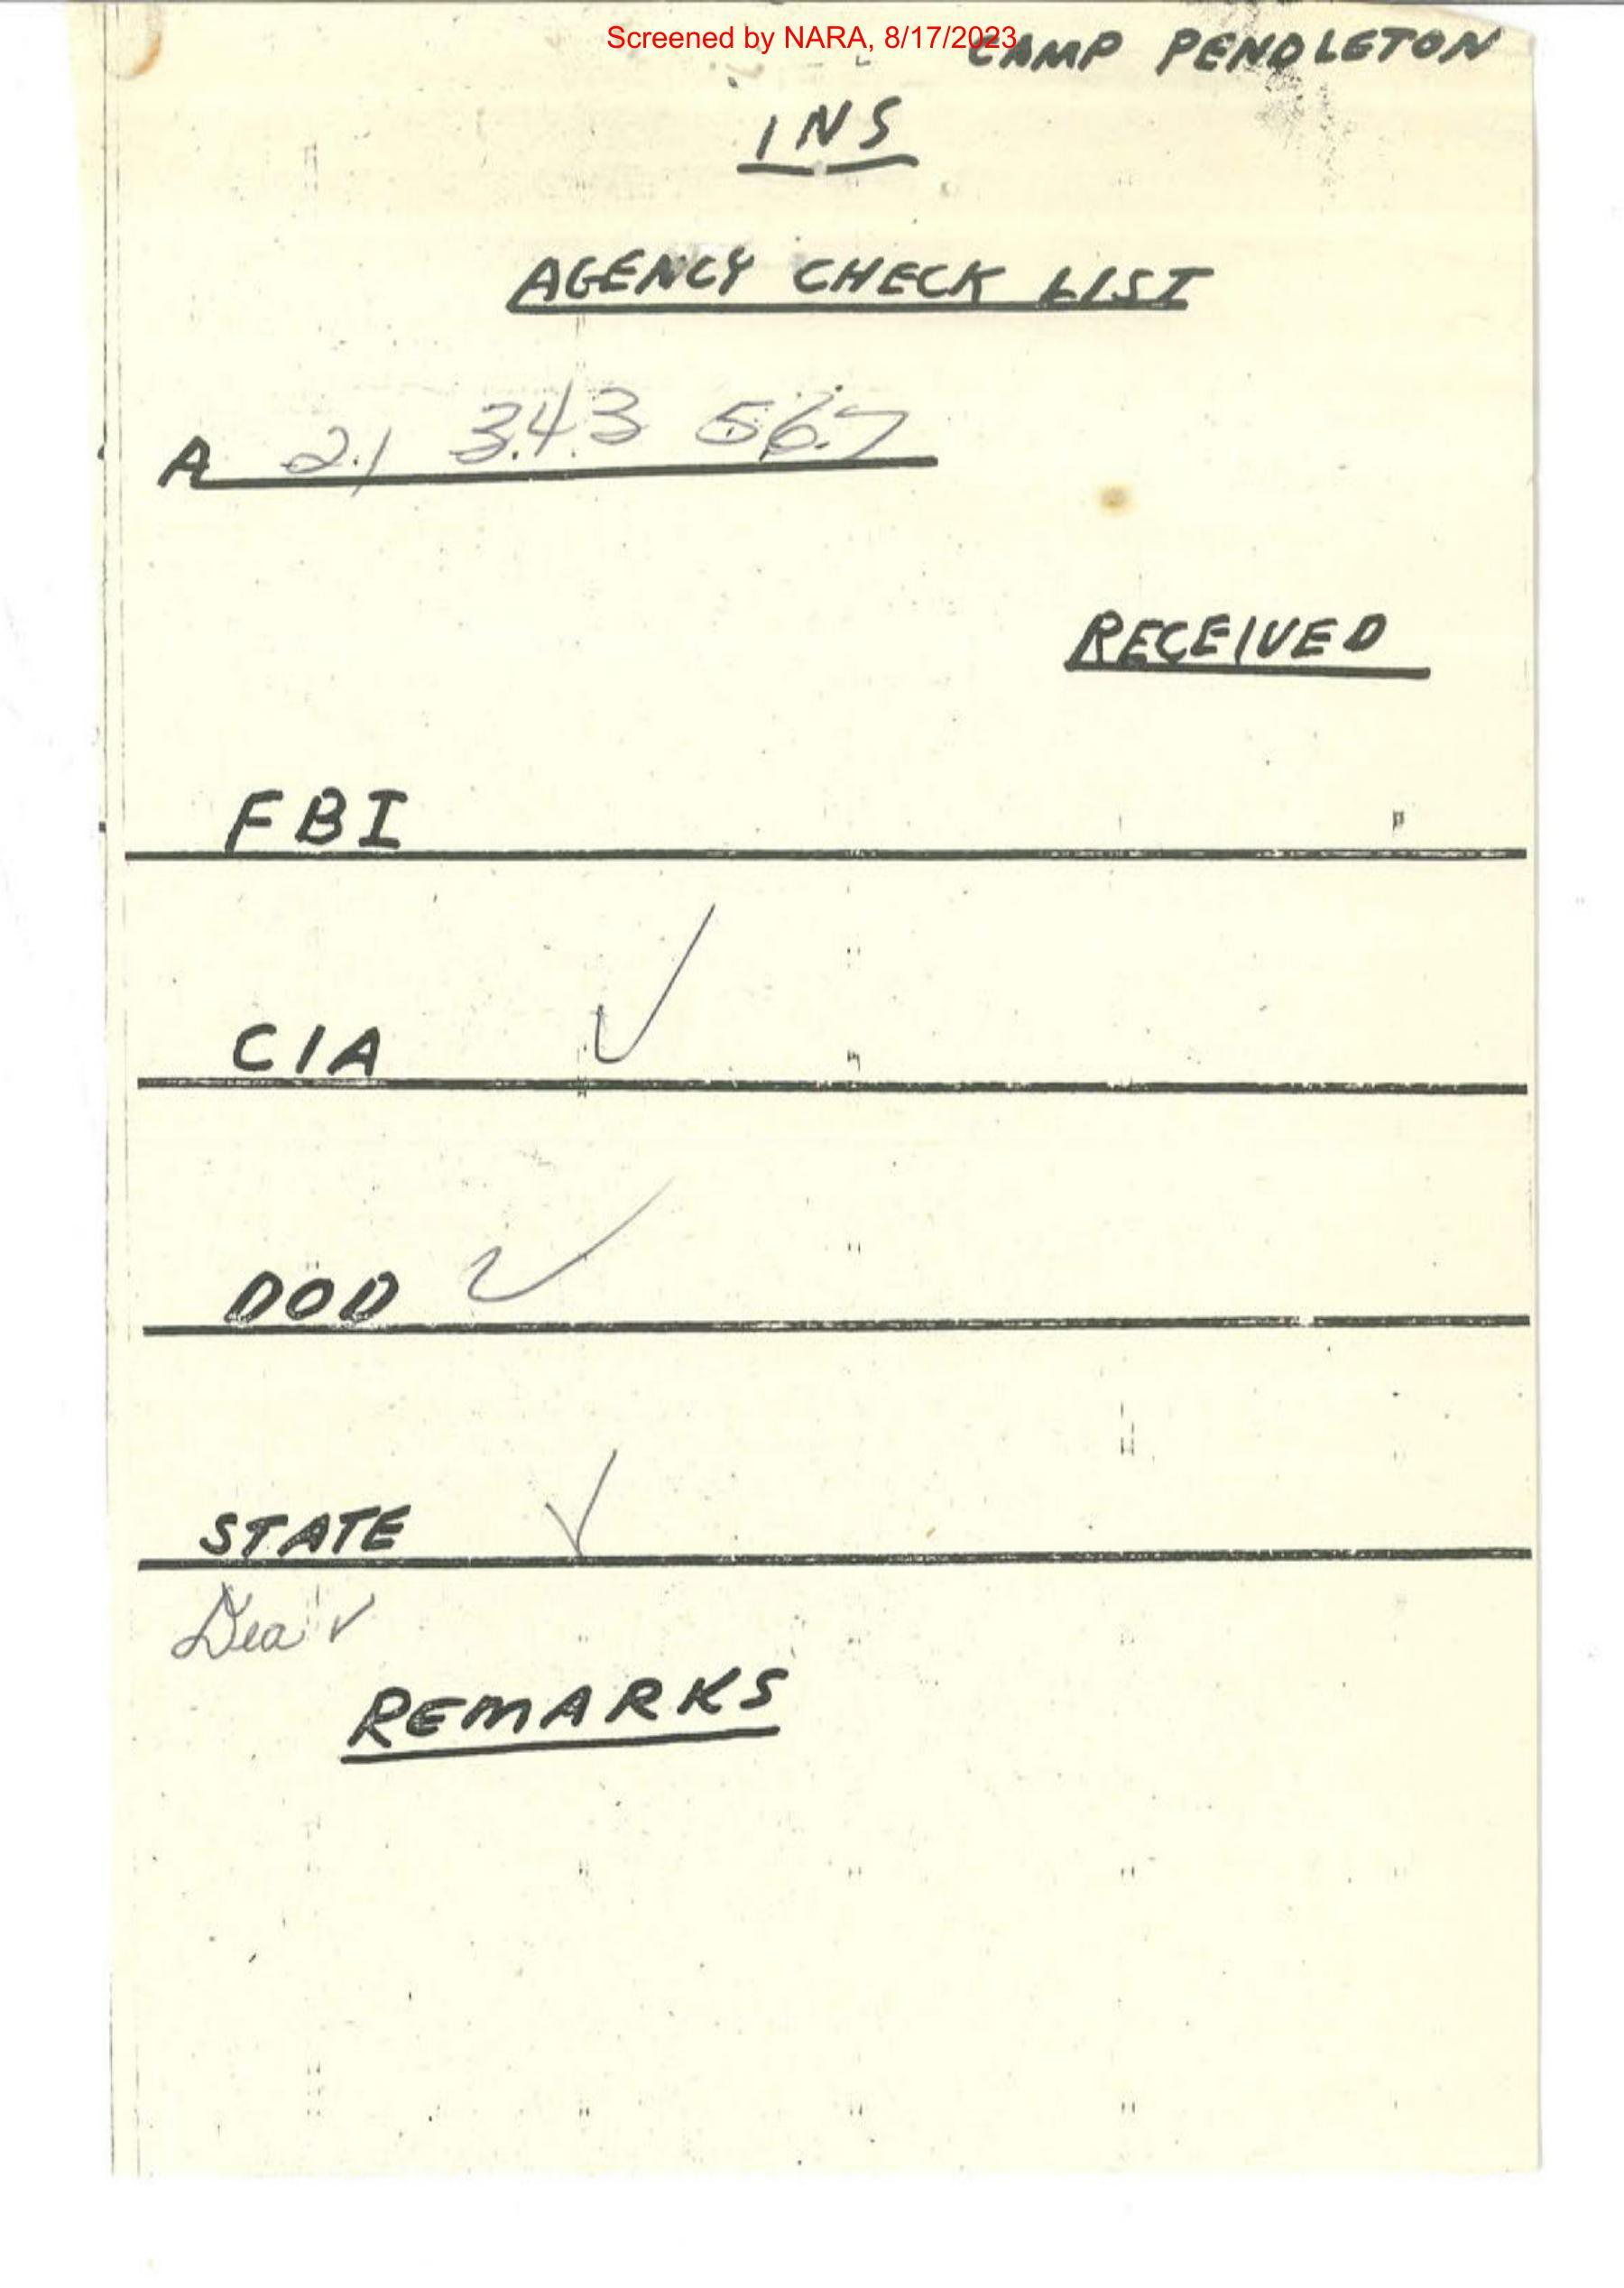 Screened by NARA, 8/17/2023
CAMP PENDLETON
INS
AGENCY CHECK LIST
A 21 343 567
RECEIVED
FBI
CIA ✓
DOD ✓
STATE ✓
Dea ✓
REMARKS